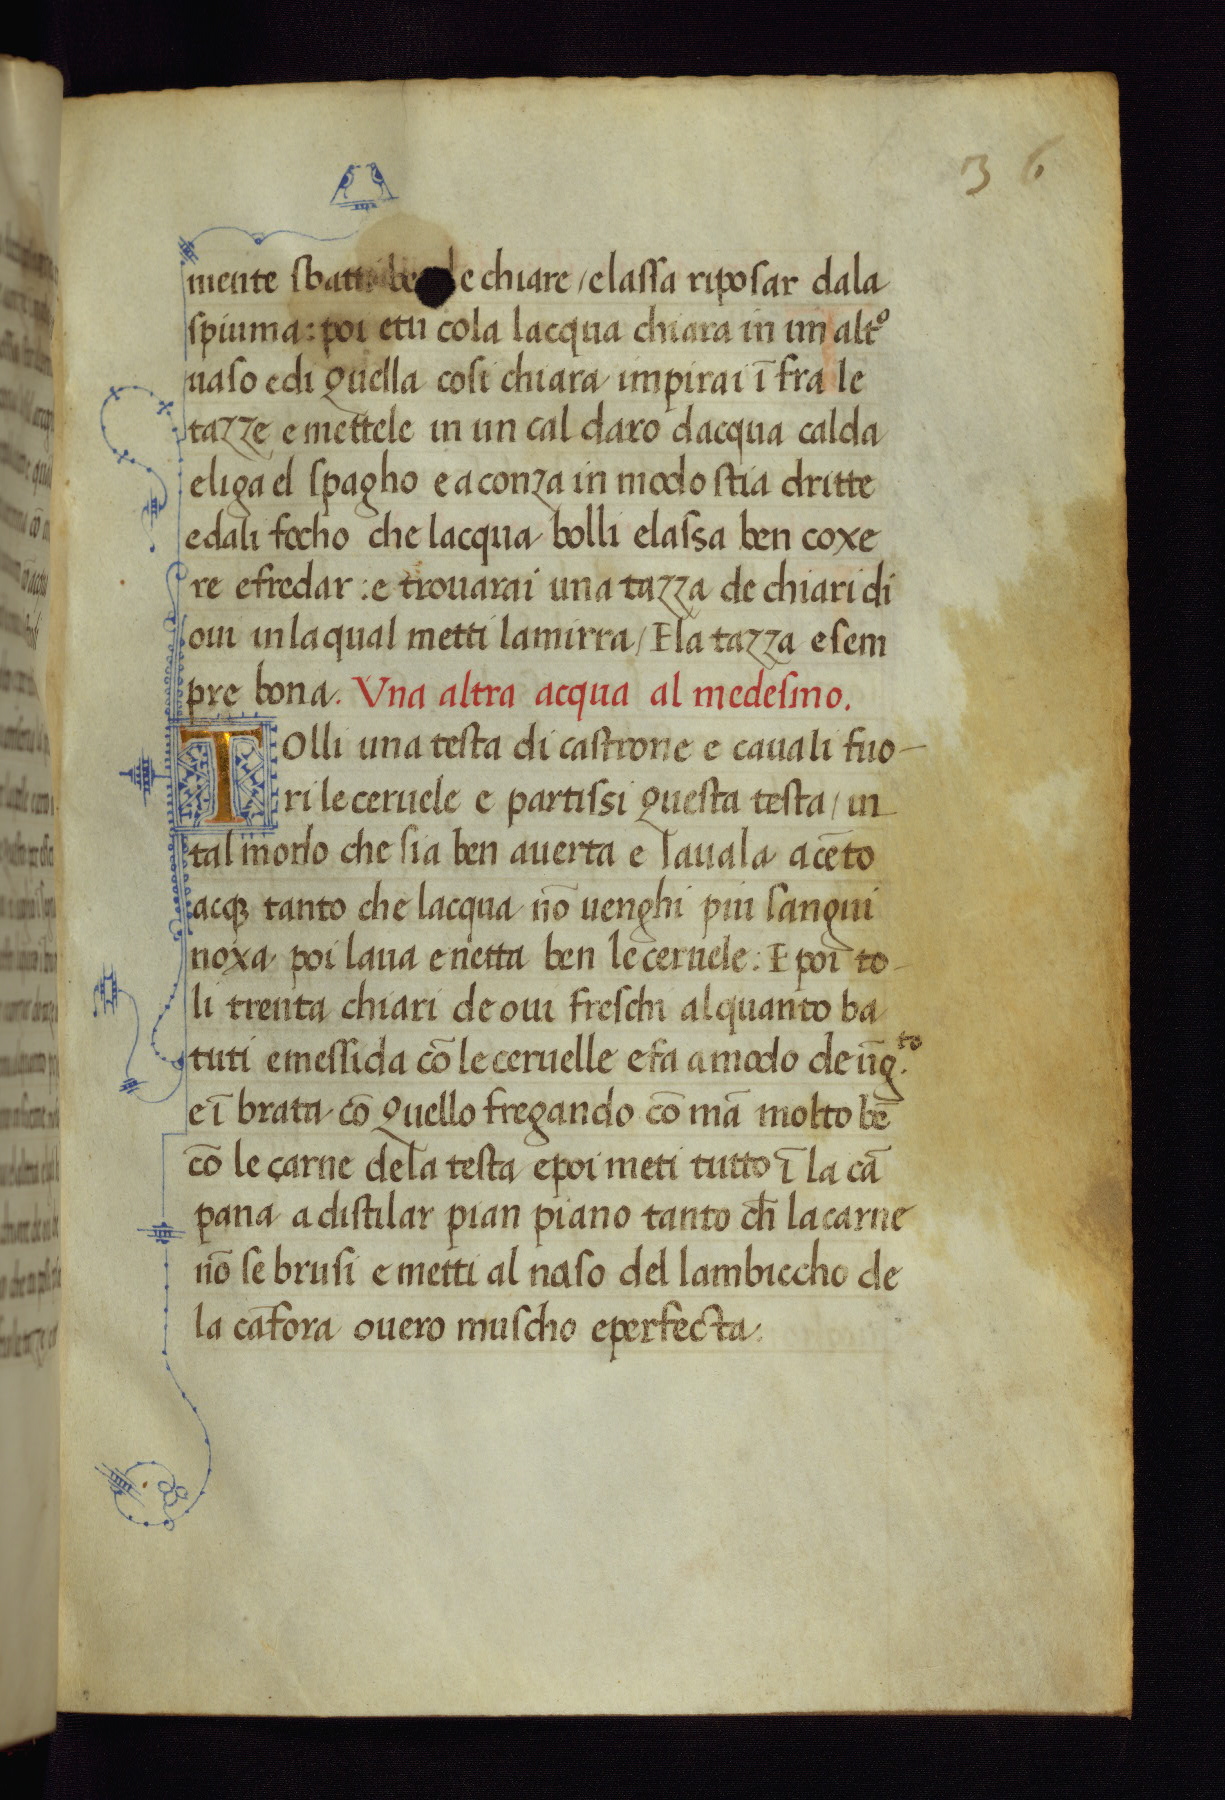 36
mente sbatti be e chiare / e lassa riposar dala
spiuma : poi etu cola lacqua chiara in un altº
uaso e di quella cosi chiara impirai ī fra le
tazze e mettele in un cal daro dacqua calda
eliga el spagho e aconza in modo stia dritte
e dali focho che lacqua bolli elassa ben coxe
re efredar : e trouarai una tazza de chiari di
oui in laqual metti lamirra / E la tazza e sem
pre bona. Vna altra acqua al medesmo.
TOlli una testa di castrone e cauali fuo-
ri le ceruele e partissi questa testa / in
tal modo che sia ben auerta e lauala a cēto
acqȝ tanto che lacqua nō uenghi piu sangui
noxa poi laua e netta ben le ceruele : E poi to-
li trenta chiari de oui freschi alquanto ba
tuti e messida cō le ceruelle e fa a modo de ūg.to
e ī brata cō quello fregando cō mā molto bē
cō le carne dela testa e poi meti tutto ī la cā
pana a distilar pian piano tanto ch̄ la carne
nō se brusi e metti al naso del lambiccho de
la cāfora ouero muscho e perfecta.